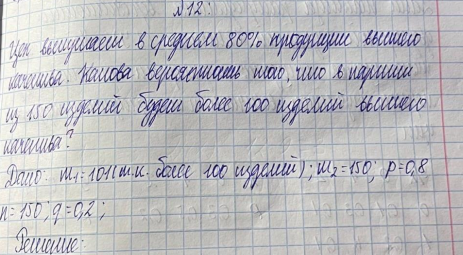 №12:
Цех выпускает в среднем 80% продукции высшего
качества. Какова вероятность того, что в партии
из 150 изделий будет более 100 изделий высшего
качества?
Дано: m₁=101(т.к. более 100 изделий); m₂=150; p=0,8
n=150; q=0,2;
Решение: